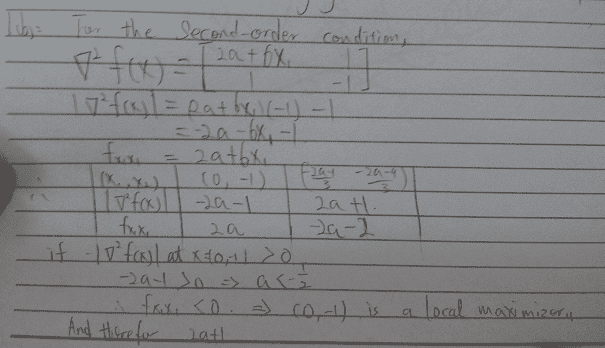 1b,= For the Second-order condition,
∇² f(x) = [ 2a + 6x₁ 1
1 -1 ]
|∇²f(x)| = (2a + 6x₁)(-1) - 1
= -2a - 6x₁ - 1
fx₁x₁ = 2a + 6x₁
∴ (x₁, x₂) (0, -1) (-2a-1/3 -2a-4/3)
|∇²f(x)| -2a-1 2a+1.
fx₁x₁ 2a -2a-2
if |∇²f(x)| at x=(0,-1) > 0,
-2a-1 > 0 => a < -1/2
∴ fx₁x₁ < 0. => (0,-1) is a local maximizer,,
And therefor 2a+1